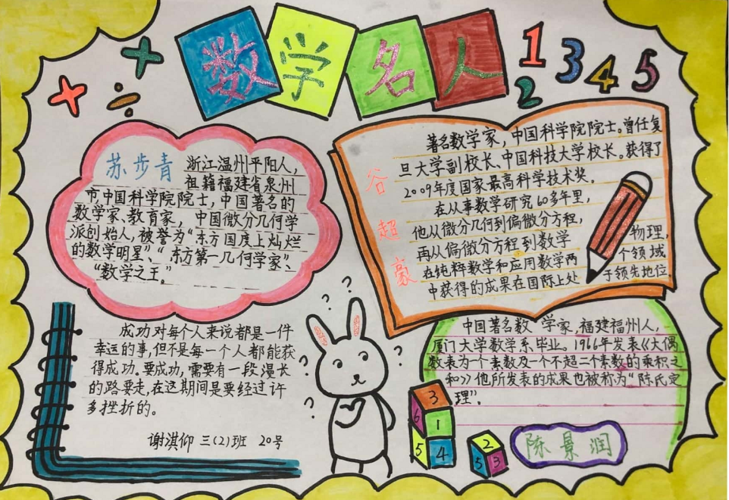 数学名人
1 2 3 4 5
苏步青
浙江温州平阳人,
祖籍福建省泉州
市,中国科学院院士,中国著名的
数学家、教育家,中国微分几何学
派创始人,被誉为“东方国度上灿烂
的数学明星”、“东方第一几何学家”、
“数学之王”。
谷超豪
著名数学家,中国科学院院士。曾任复
旦大学副校长、中国科技大学校长。获得了
2009年度国家最高科学技术奖。
在从事数学研究60多年里,
他从微分几何到偏微分方程,
再从偏微分方程到数学物理,
在纯粹数学和应用数学两个领域
中获得的成果在国际上处于领先地位
成功对每个人来说都是一件
幸运的事,但不是每一个人都能获
得成功。要成功,需要有一段漫长
的路要走,在这期间是要经过许
多挫折的。
谢淇仰 三(2)班 20号
中国著名数学家,福建福州人,
厦门大学数学系毕业。1966年发表《大偶
数表为一个素数及一个不超二个素数的乘积之
和》他所发表的成果也被称为“陈氏定
理”。
陈景润
3
6 1
5 4
2
5 3